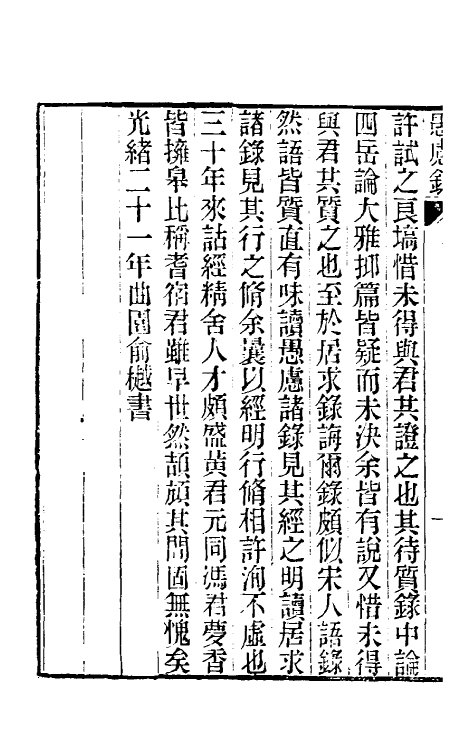 愚慮錄
許試之良塙惜未得與君共證之也其待質錄中論
四岳論大雅抑篇皆疑而未決余皆有說又惜未得
與君共質之也至於居求錄誨爾錄頗似宋人語錄
然語皆質直有味讀愚慮諸錄見其經之明讀居求
諸錄見其行之脩余曩以經明行脩相許洵不虛也
三十年來詁經精舍人才頗盛黃君元同馮君夢香
皆擁皋比稱耆宿君雖早世然頡頏其間固無愧矣
光緒二十一年曲園俞樾書
一